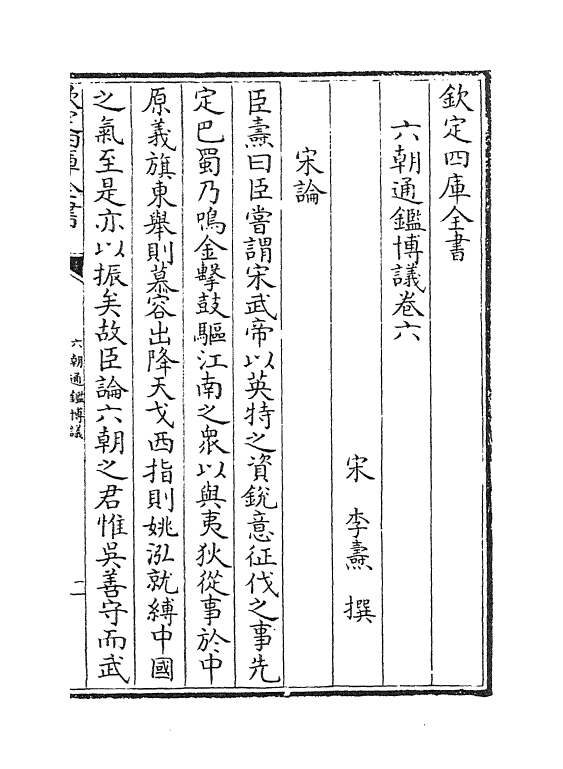 欽定四庫全書
六朝通鑑博議卷六
宋 李燾 撰
宋論
臣燾曰臣嘗謂宋武帝以英特之資銳意征伐之事先
定巴蜀乃鳴金擊鼓驅江南之衆以與夷狄從事於中
原義旗東舉則慕容出降天戈西指則姚泓就縛中國
之氣至是亦以振矣故臣論六朝之君惟吳善守而武
欽定四庫全書
六朝通鑑博議